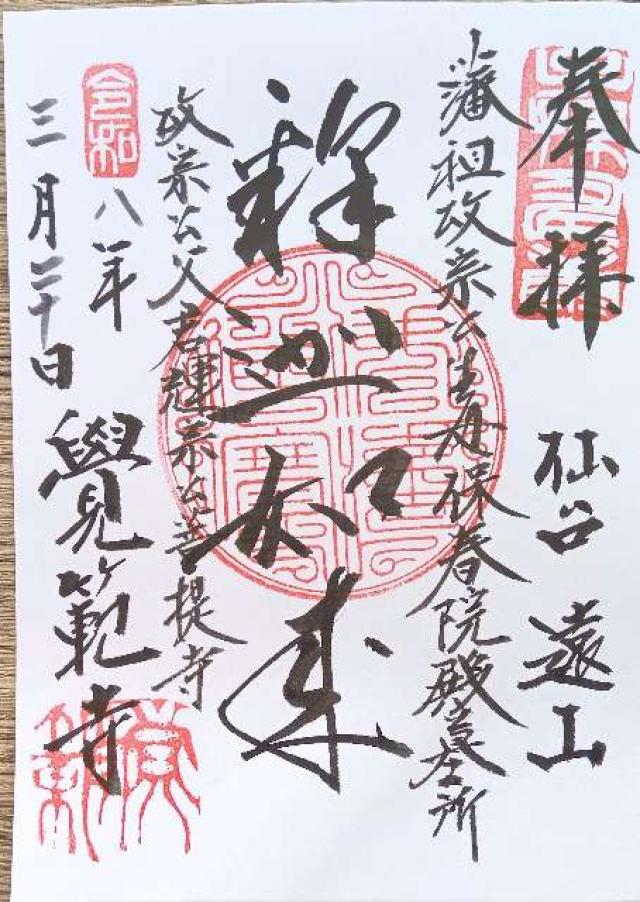 奉拝
仙台 遠山
藩祖政宗公生母保春院殿墓所
釋迦如来
政宗公父君輝宗公菩提寺
令和
八年
三月二十日
覺範寺